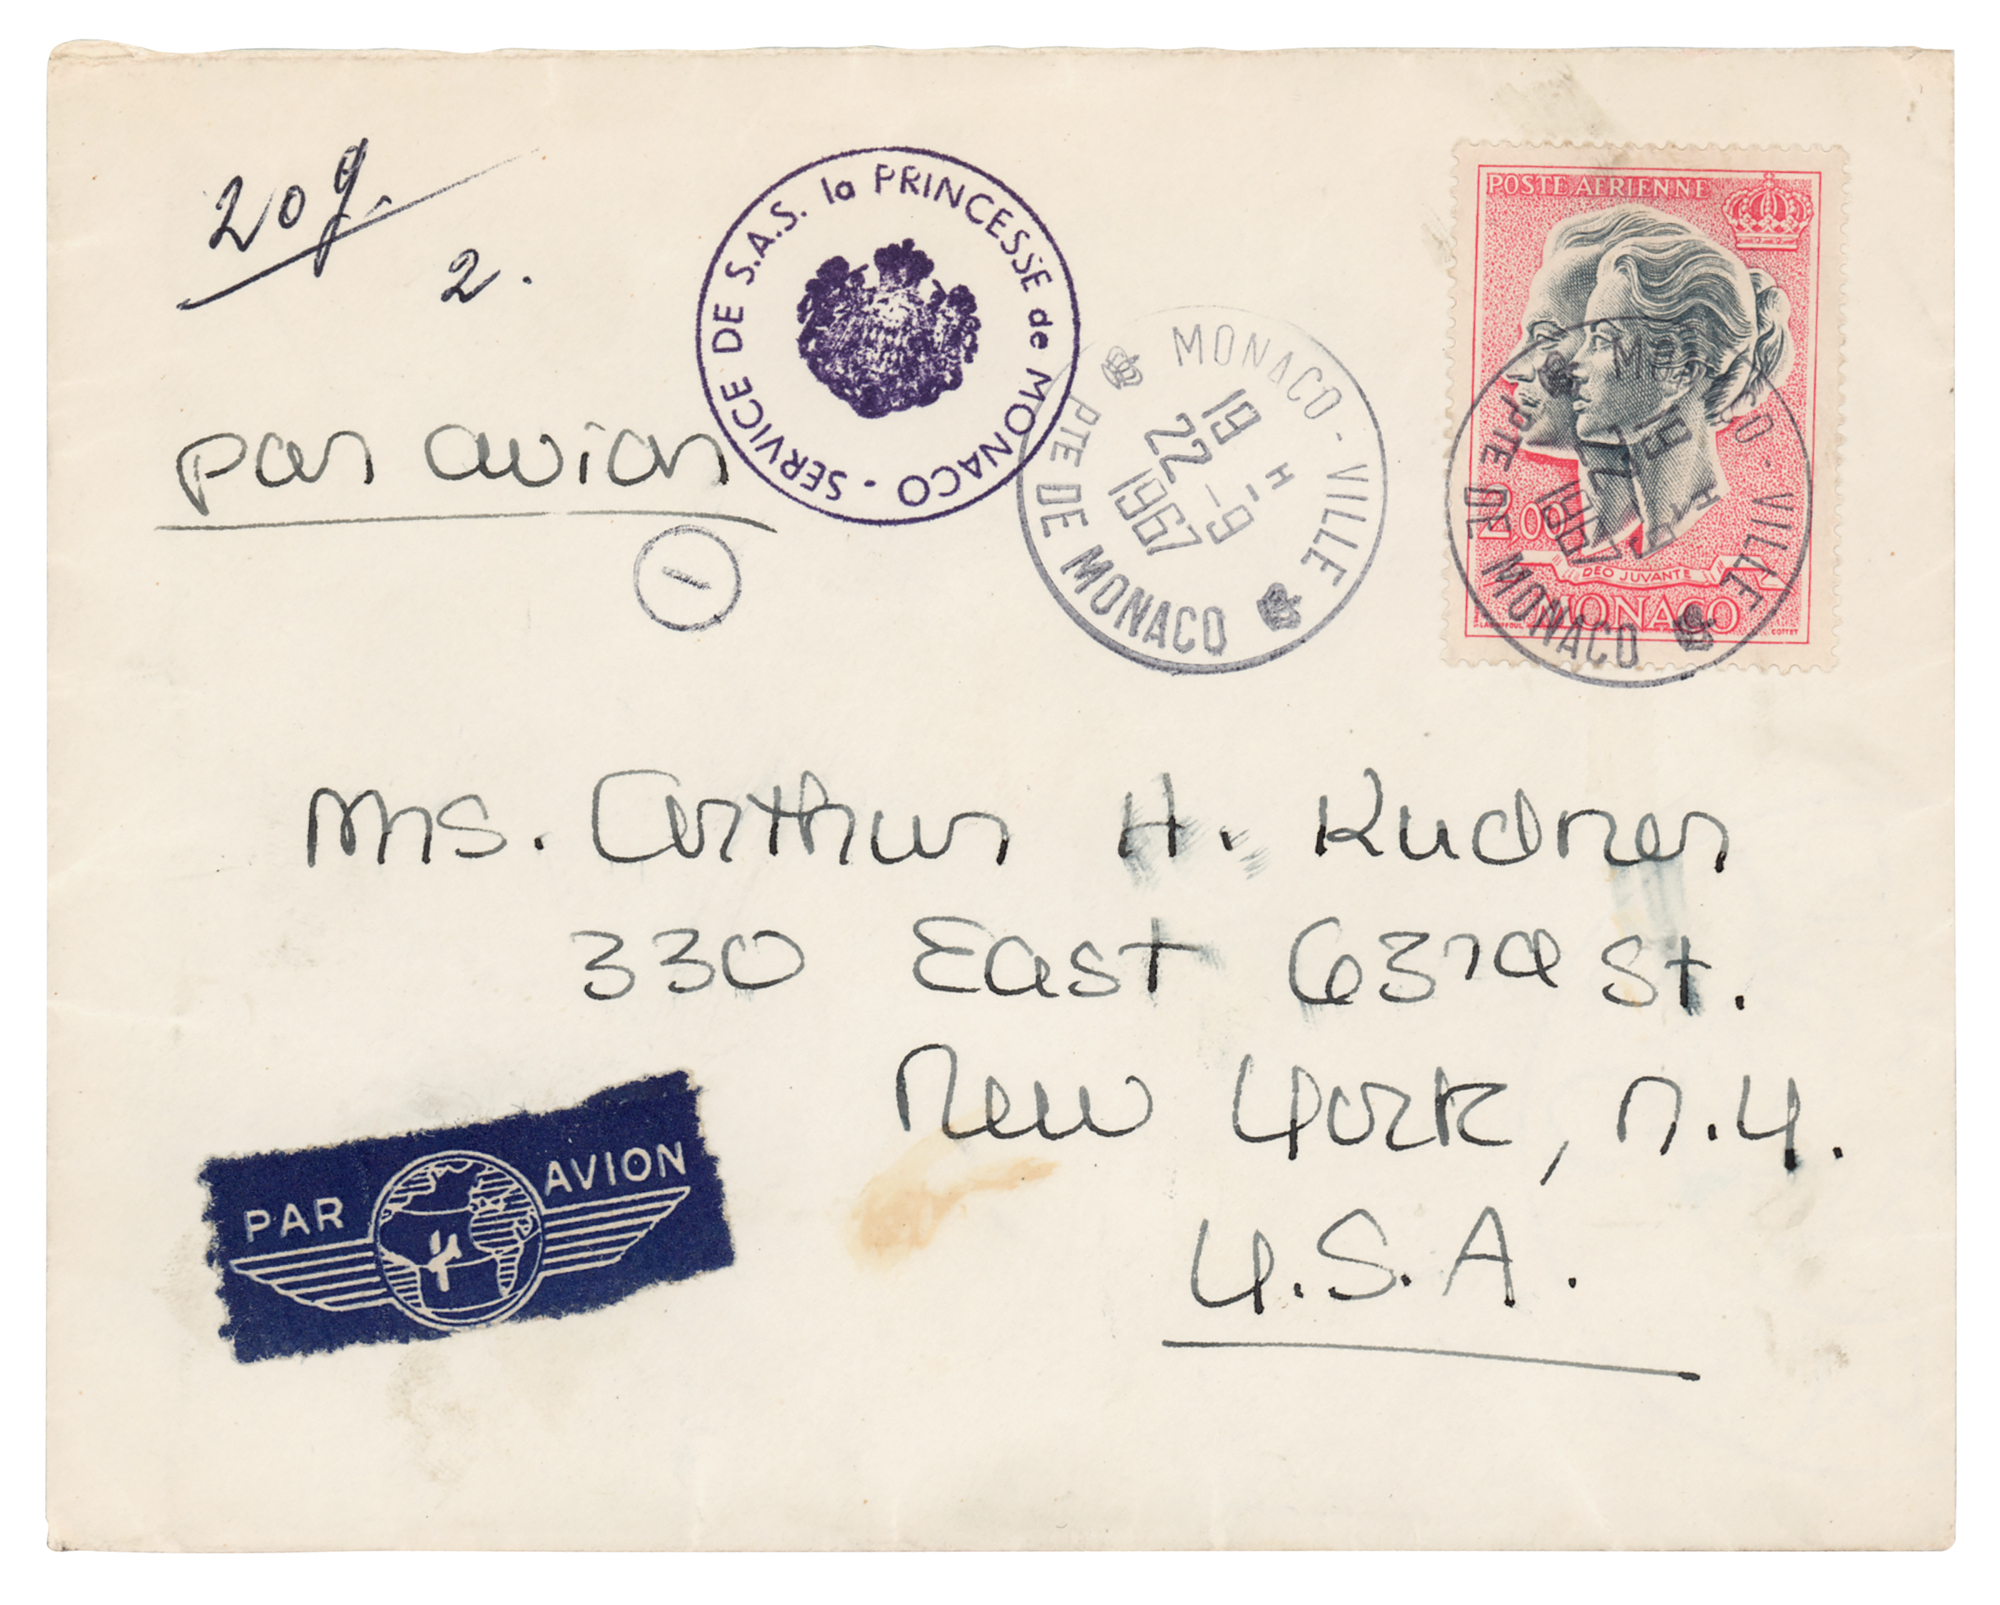 20g.
2.
SERVICE DE S.A.S. la PRINCESSE de MONACO -
par avion
1
MONACO - VILLE
PTE DE MONACO
19 H
22 -9
1967
POSTE AERIENNE
2,00
DEO JUVANTE
MONACO
COTTET
MONACO - VILLE
PTE DE MONACO
19 H
22 -9
1967
Mrs. Arthur H. Kudner
330 East 63rd St.
New York, N.Y.
U.S.A.
PAR AVION